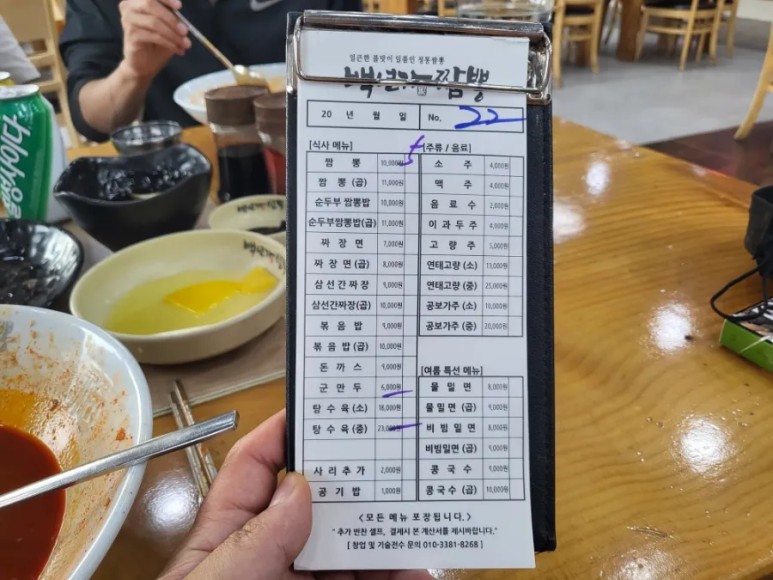 얼큰한 불맛이 일품인 정통짬뽕
백년가 짬뽕
20 년 월 일 No. 22
[식사 메뉴]
짬 뽕 10,000원
짬 뽕 (곱) 11,000원
순두부 짬뽕밥 10,000원
순두부짬뽕밥(곱) 11,000원
짜 장 면 7,000원
짜 장 면 (곱) 8,000원
삼선간짜장 9,000원
삼선간짜장(곱) 10,000원
볶 음 밥 9,000원
볶 음 밥 (곱) 10,000원
돈 까 스 9,000원
군 만 두 6,000원
탕 수 육 (소) 18,000원
탕 수 육 (중) 23,000원
사 리 추 가 2,000원
공 기 밥 1,000원
[주류 / 음료]
소 주 4,000원
맥 주 4,000원
음 료 수 2,000원
이 과 두 주 4,000원
고 량 주 5,000원
연태고량 (소) 15,000원
연태고량 (중) 25,000원
공보가주 (소) 10,000원
공보가주 (중) 20,000원
[여름 특선 메뉴]
물 밀 면 8,000원
물 밀 면 (곱) 9,000원
비 빔 밀 면 8,000원
비빔밀면 (곱) 9,000원
콩 국 수 9,000원
콩 국 수 (곱) 10,000원
<모든 메뉴 포장됩니다.>
" 추가 반찬 셀프, 결제시 본 계산서를 제시바랍니다."
[ 창업 및 기술전수 문의 010-3381-8268 ]